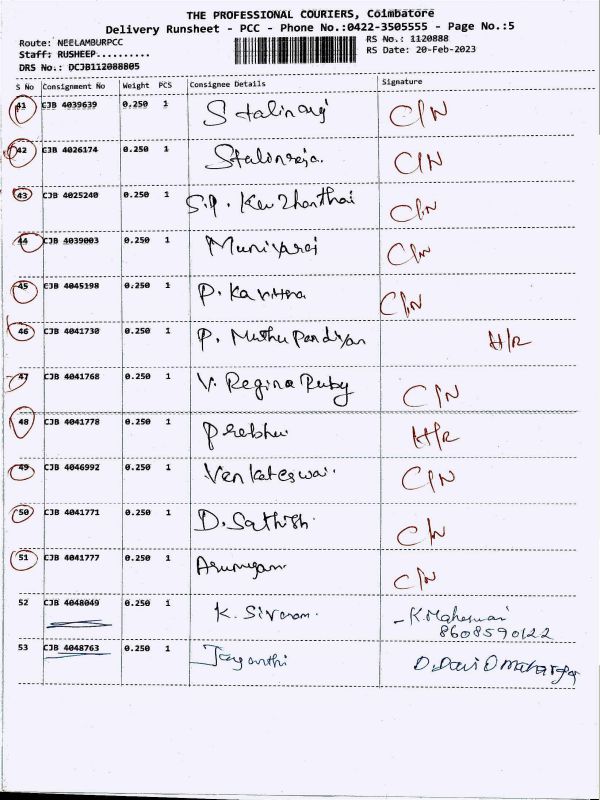 THE PROFESSIONAL COURIERS, Coimbatore
Delivery Runsheet - PCC - Phone No.:0422-3505555 - Page No.:5
Route: NEELAMBURPCC
RS No.: 1120888
Staff: RUSHEEP..........
RS Date: 20-Feb-2023
DRS No.: DCJB112088805
S No Consignment No Weight PCS Consignee Details Signature
41 CJB 4039639 0.250 1 Stalinraj C/N
42 CJB 4026174 0.250 1 Stalinraja. C/N
43 CJB 4025240 0.250 1 S.P. Kuzhanthai C/N
44 CJB 4039003 0.250 1 Muniyaraj C/N
45 CJB 4045198 0.250 1 P. Kavitha C/N
46 CJB 4041730 0.250 1 P. Muthu Pandiyan H/R
47 CJB 4041768 0.250 1 V. Regina Ruby C/N
48 CJB 4041778 0.250 1 Prabhu H/R
49 CJB 4046992 0.250 1 Venkateswar. C/N
50 CJB 4041771 0.250 1 D. Sathish. C/N
51 CJB 4041777 0.250 1 Arumugam C/N
52 CJB 4048049 0.250 1 K. Sivaram. K. Maheswari
8608590122
53 CJB 4048763 0.250 1 Jayanthi